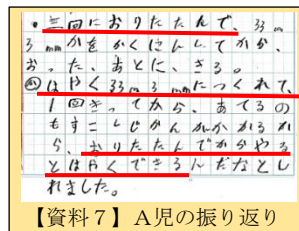 ・三回におりたたんで、33m
3mmかをかくにんしてかか、
おった、あとに、きる。
はやく33m3mmにつくれて、
1回きってから、あてるの
もすこしじかんがかかるか
ら、おりたたんでからやる
とはやくできるんだなとし
れました。
【資料7】A児の振り返り